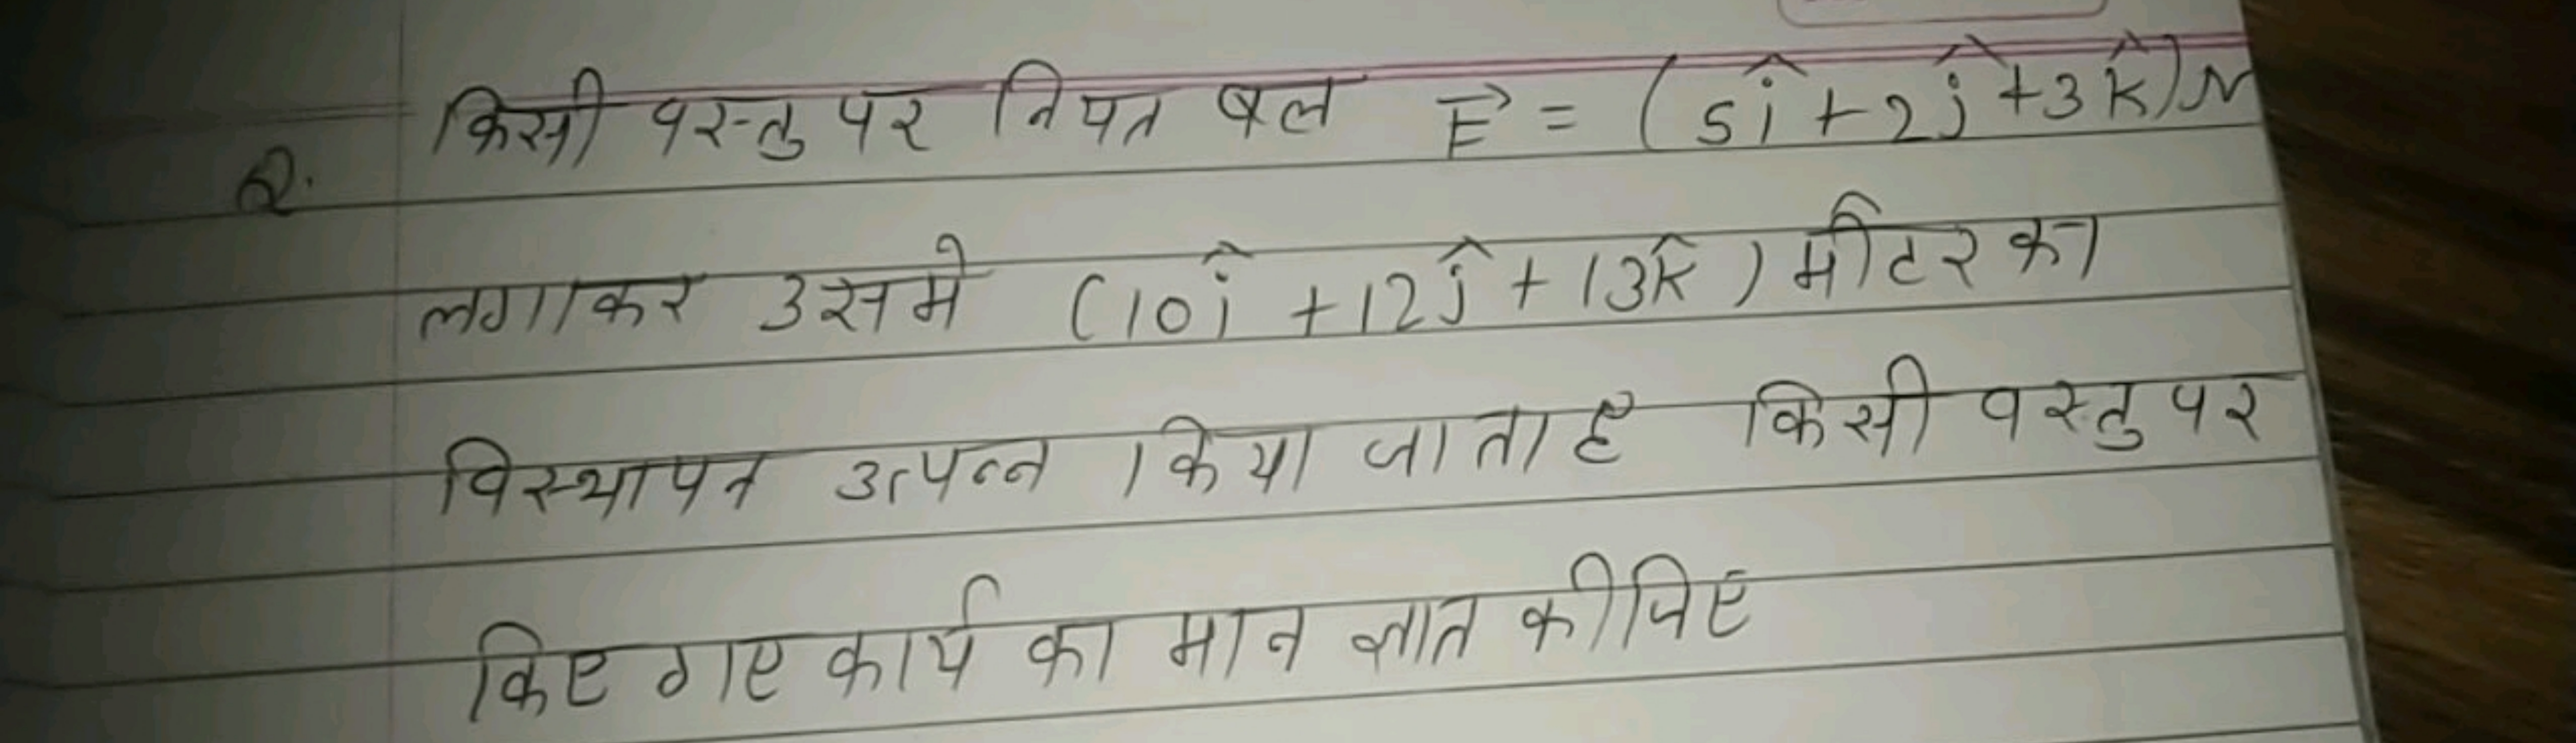 Q. किसी वस्तु पर नियत बल F⃗ = (5î + 2ĵ + 3k̂) N
लगाकर उसमे (10î + 12ĵ + 13k̂) मीटर का
विस्थापन उत्पन्न किया जाता है किसी वस्तु पर
किए गए कार्य का मान ज्ञात कीजिए